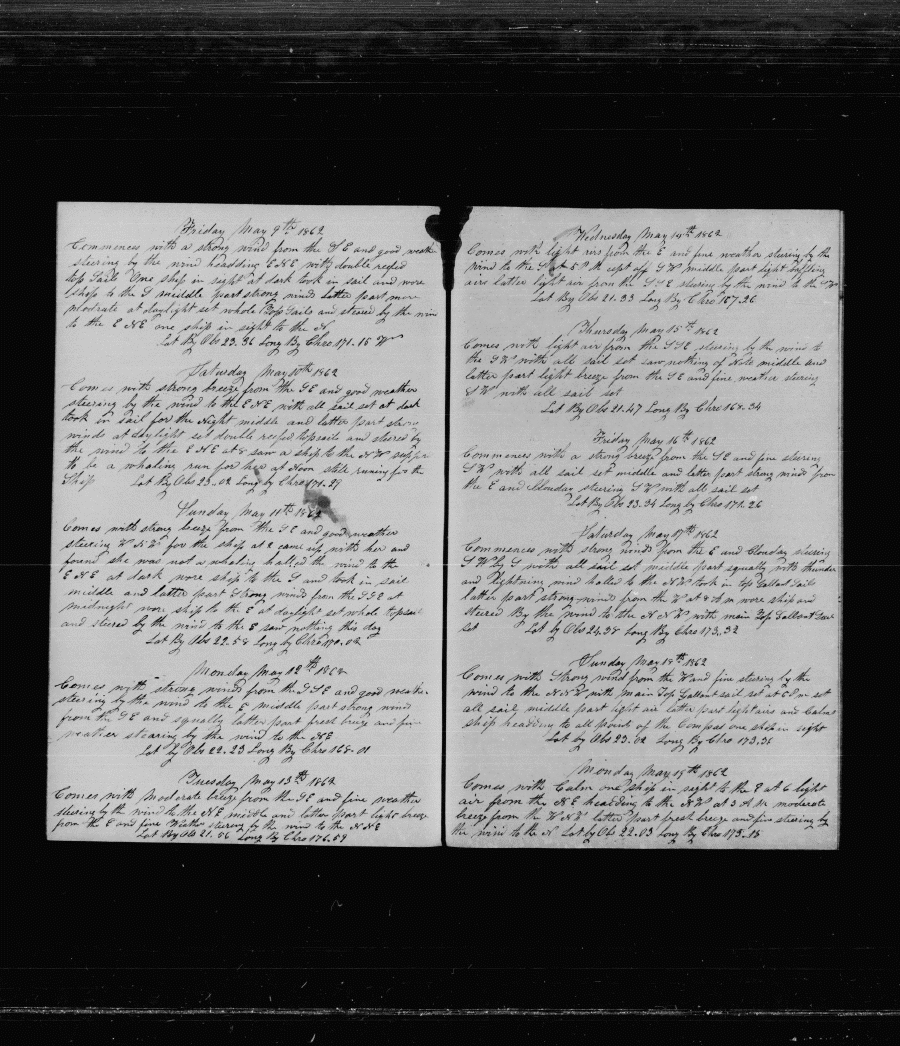 Friday May 9th 1862
Commences with a strong wind from the S E and good weathe
steering by the wind headding E N E with double reefed
top Sails One ship in sight at dark took in sail and wore
ship to the S middle part strong winds latter part more
Modrate at daylight set whole Top Sails and steered by the wind
to the E N E one ship in sight to the N
Lat By Obs 23.36 Long By Chro 171.15 W
Saturday May 10th 1862
Comes with strong breeze from the S E and good weather
steering by the wind to the E N E with all sail set at dark
took in sail for the Night middle and latter part strong
winds at daylight set double reefed topsails and steered by
the wind to the E N E at 8 saw a ship to the N W
to be a whaling run for her at Noon still runing for the
Ship Lat By Obs 23.02 Long by Chro 171.29
Sunday May 11th 1862
Comes with strong breeze from the S E and good weather
steering W N W for the ship at 2 came up with her and
found she was not a whaling halled the wind to the
E N E at dark wore ship to the S and took in sail
middle and latter part Strong winds from the S S E at
madnight wore ship to the E at daylight set whole topsail
and steered by the wind to the E saw nothing this day
Lat By Obs 22.58 Long by Chro 170.02
Monday May 12th 1862
Comes with strong winds from the S S E and good weathe
steering by the wind to the E middle part strong wind
from the S E and squally latter part fresh breeze and fine
weather stearing by the wind to the N E
Lat By Obs 22.23 Long By Chro 168.01
Tuesday May 13th 1862
Comes with Moderate breeze from the S E and fine weather
steering by the wind to the N E middle and latter part light breeze
from the E and fine Wether stering by the wind to the N N E
Lat By Obs 21.06 Long By Chro 176.59
Wednesday May 14th 1862
Comes with light airs from the E and fine weather steering by the
wind to the S at 5 P M cept off S W middle part light baffling
airs latter light air from the S S E steering by the wind to the S W
Lat By Obs 21.33 Long By Chro 167.26
Thursday May 15th 1862
Comes with light air from the S S E steering by the wind to
the S W with all sail set saw nothing of Note middle and
latter part light breeze from the S E and fine weather steering
S W with all sail set
Lat By Obs 21.47 Long By Chro 168.34
Friday May 16th 1862
Commences with a strong breeze from the S E and fine steering
S W with all sail set middle and latter part strong winds from
the E and Clouday steering S W with all sail set
Lat By Obs 23.34 Long by Chro 171.26
Saturday May 17th 1862
Commences with strong winds from the E and Clouday steering
S W by S with all sail set middle part squally with thunder
and lightning wind halled to the N W took in top Gallant Sails
latter part strong winds from the W at 8 A m wore ship and
steered By the wind to the N N W with main Top Gallant Sail
set Lat by Obs 24.38 Long By Chro 173.32
Sunday May 18th 1862
Comes with Strong wind from the W and fine steering by the
wind to the N N W with main Top Gallant sail set at 2 P m set
all sail middle part light air latter part light airs and Calm
ship heading to all points of the Compas one ship in sight
Lat by Obs 23.02 Long By Chro 173.36
Monday May 19th 1862
Comes with Calm one ship in sight to the E at 6 light
air from the N E heading to the N W at 3 A M moderate
breeze from the W N W latter part fresh breeze and fine steering by
the wind to the N Lat by Obs 22.03 Long By Chro 173.15